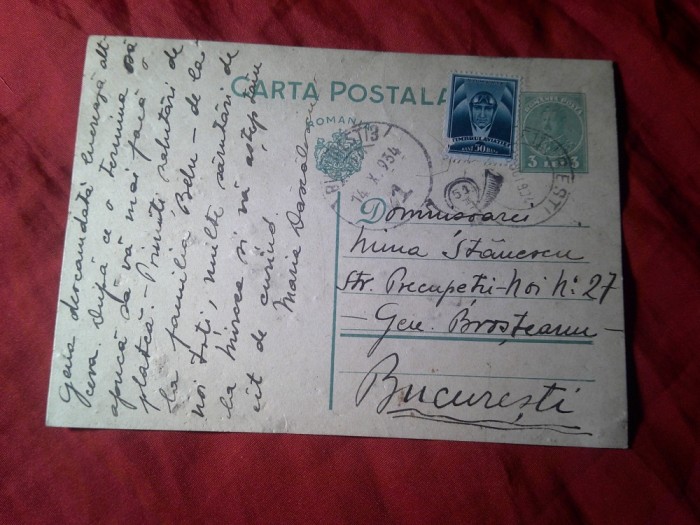 CARTA POSTALA
ROMANIA
TIMBRUL AVIAȚIEI
50 BANI
3
3
14 X. 934
Domnisoarei
Nina Stănescu
Str. Precupeții-Noi No 27
- Gen. Broșteanu -
București
Geia deocamdată lucrează alt-
ceva. După ce o termina să
apucă să vă mai facă o
platcă. - Primiți salutări de
la familia Belu - de la
noi toți, multe sărutări de
la Mircea și vă aștep tăm
cît de curînd.
Maria Dascălescu